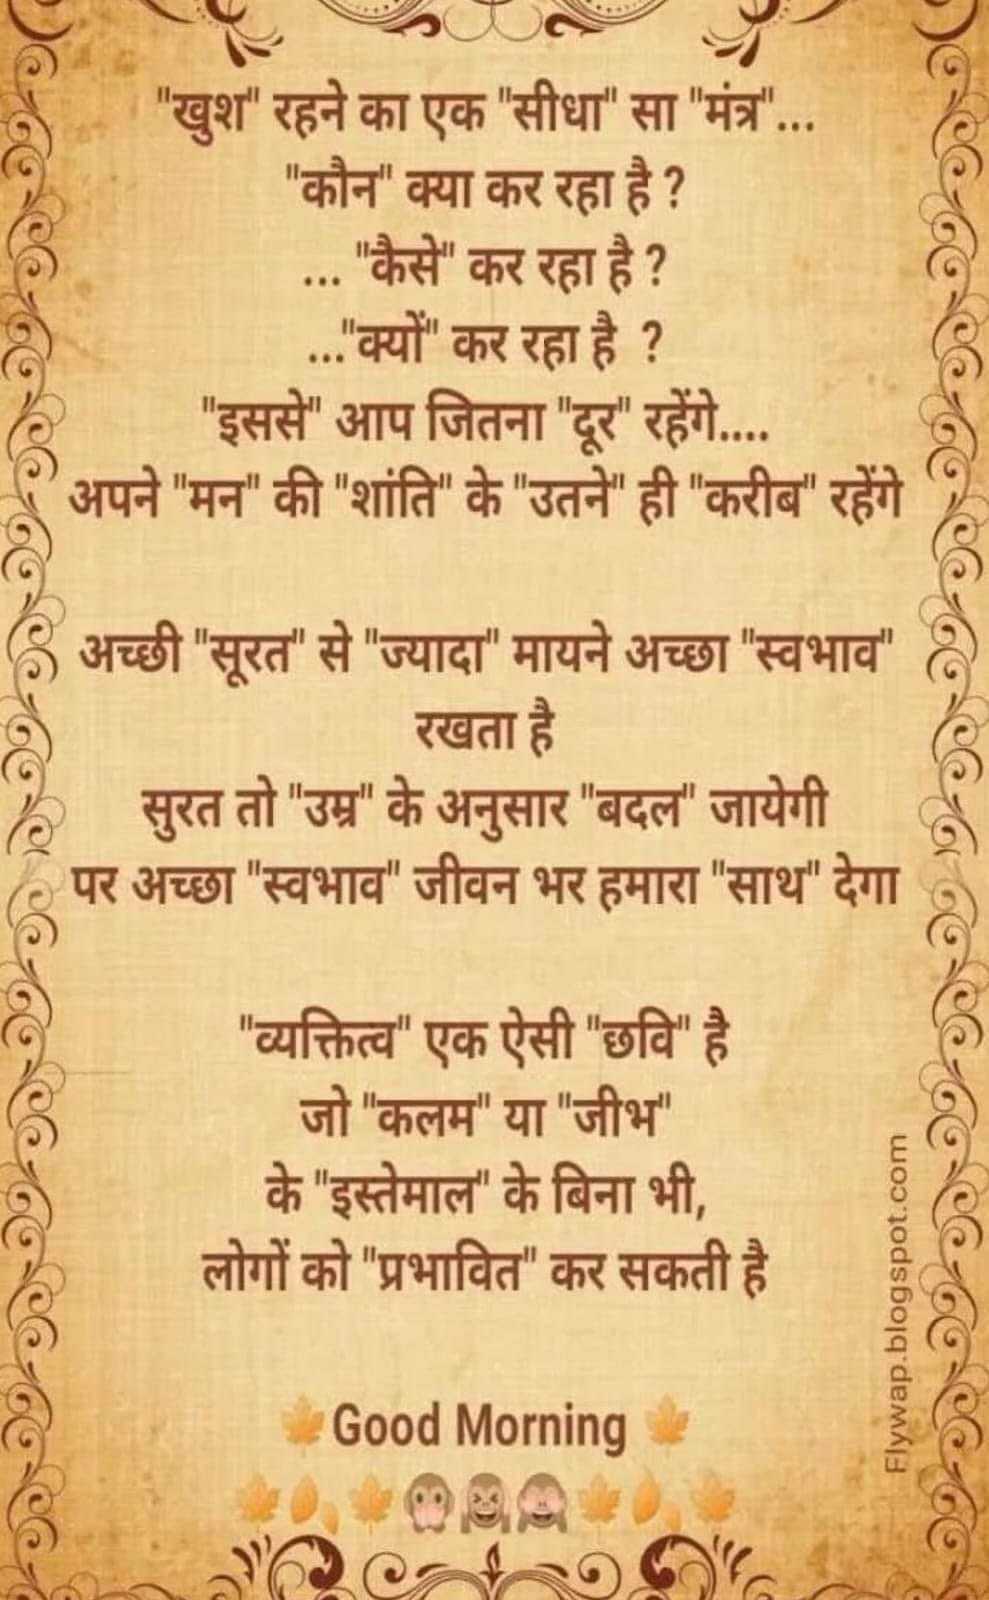 "खुश" रहने का एक "सीधा" सा "मंत्र"...
"कौन" क्या कर रहा है ?
... "कैसे" कर रहा है ?
..."क्यों" कर रहा है ?
"इससे" आप जितना "दूर" रहेंगे....
अपने "मन" की "शांति" के "उतने" ही "करीब" रहेंगे
अच्छी "सूरत" से "ज्यादा" मायने अच्छा "स्वभाव"
रखता है
सुरत तो "उम्र" के अनुसार "बदल" जायेगी
पर अच्छा "स्वभाव" जीवन भर हमारा "साथ" देगा
"व्यक्तित्व" एक ऐसी "छवि" है
जो "कलम" या "जीभ"
के "इस्तेमाल" के बिना भी,
लोगों को "प्रभावित" कर सकती है
🍁Good Morning 🍁
🍁🍂🍁🙊🙉🙈🍁🍂🍁
Flywap.blogspot.com